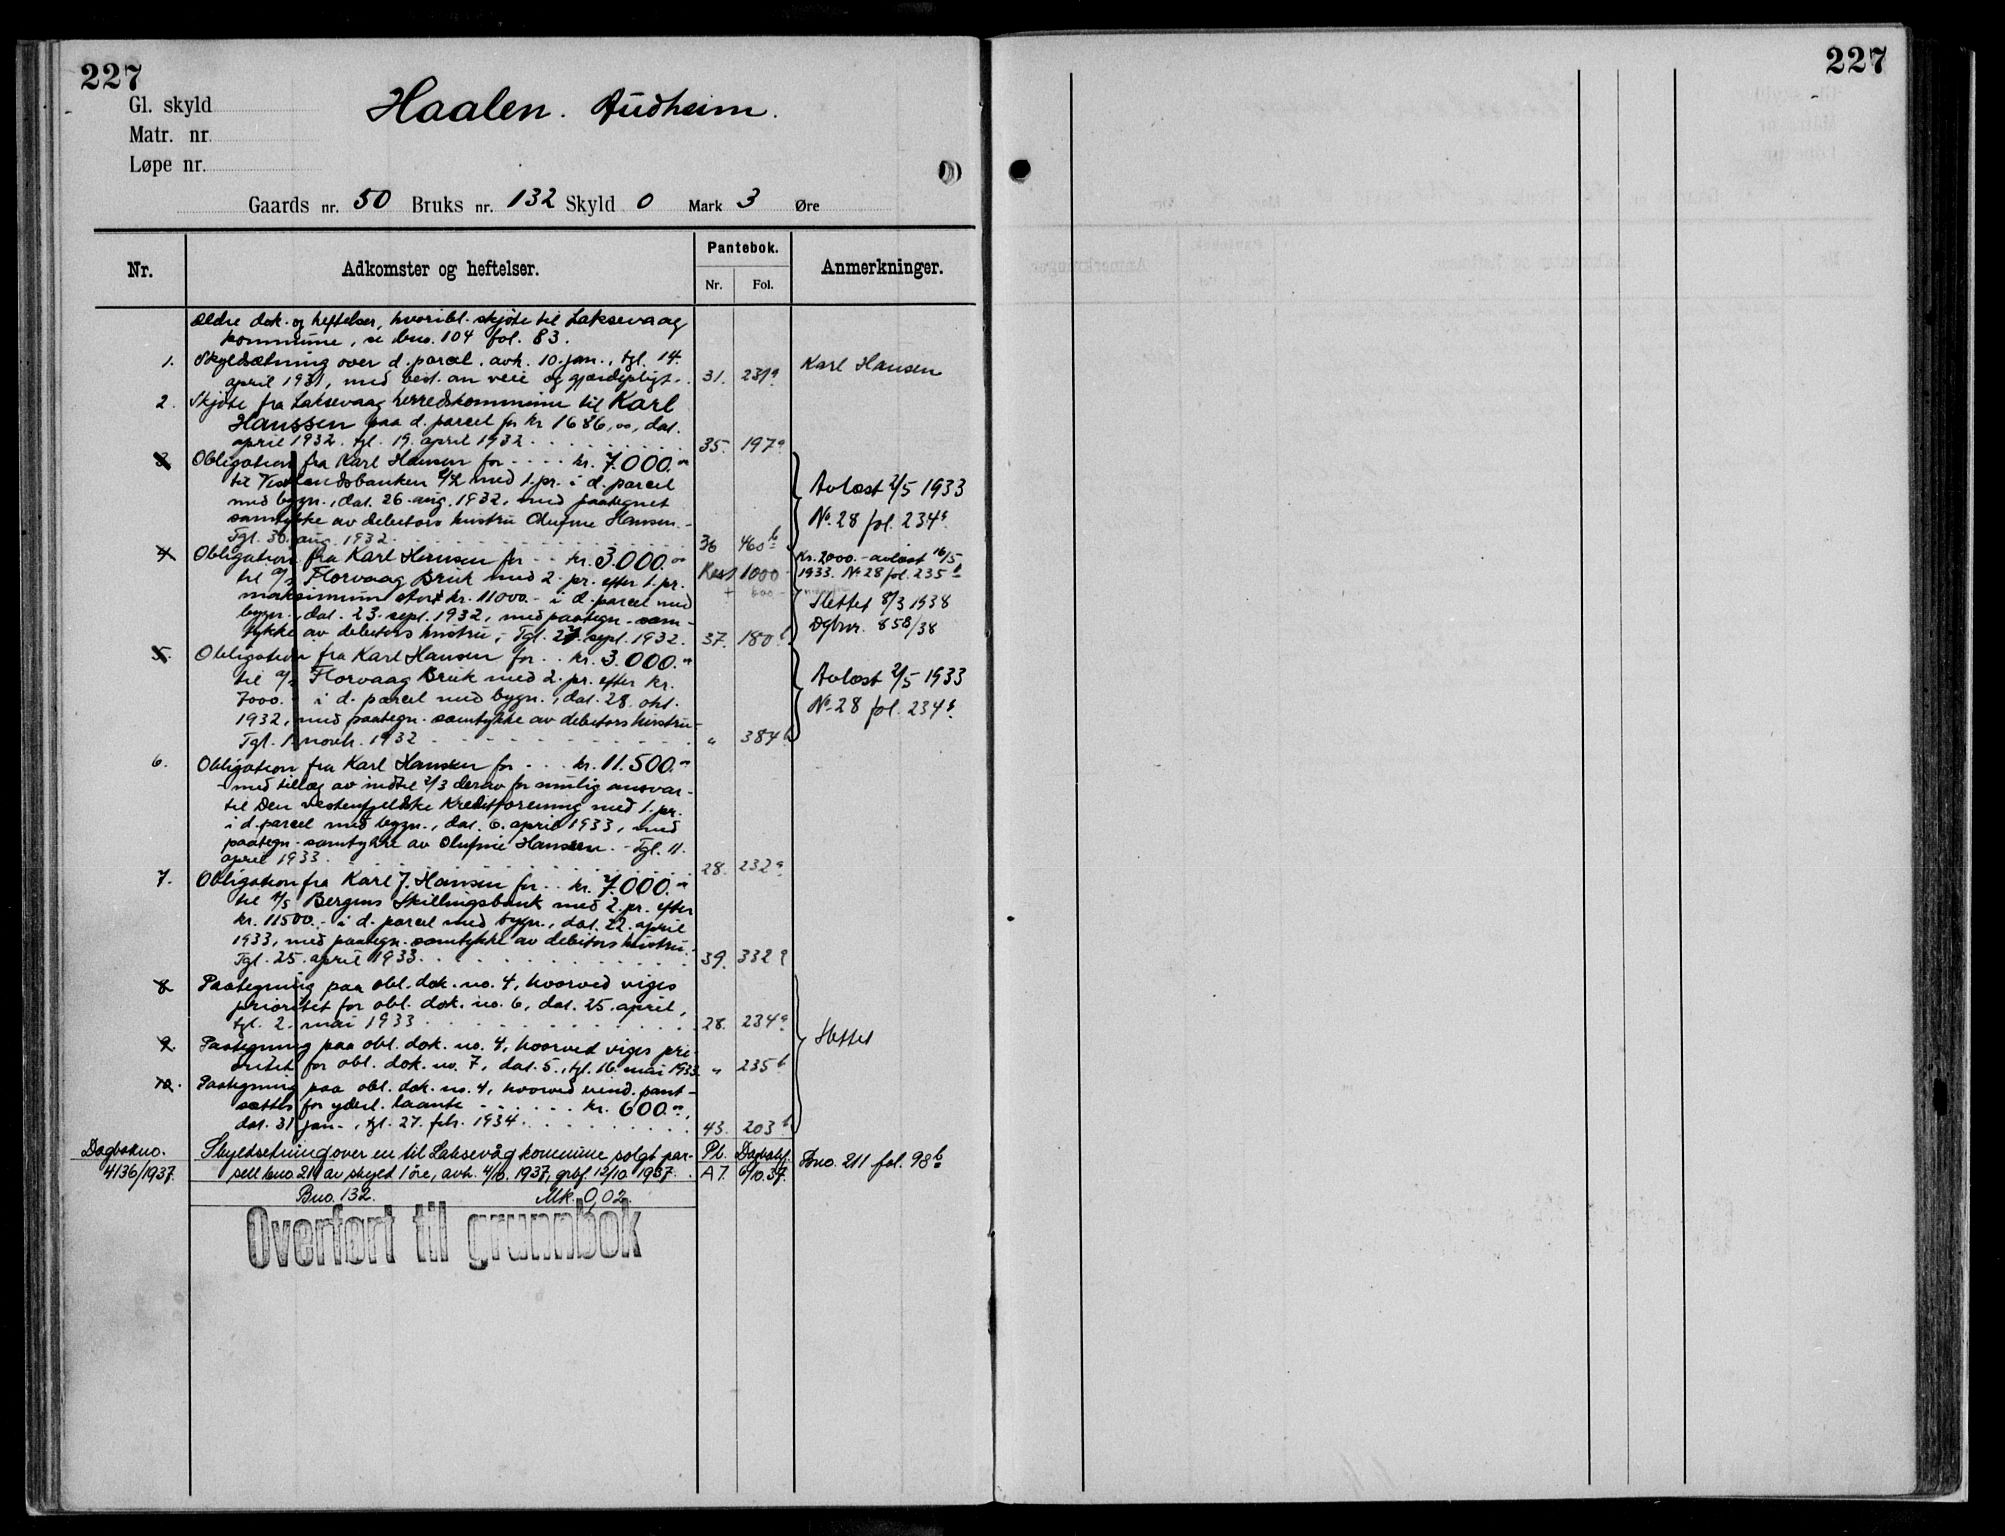 227
Gl. skyld
Matr. nr.
Løpe nr.
Haalen. Audheim.
Gaards nr. 50 Bruks nr. 132 Skyld 0 Mark 3 Øre
Nr.
Adkomster og heftelser.
Pantebok.
Nr. Fol.
Anmerkninger.
Ældre dok. og heftelser, hvoribl. skjøte til Laksevaag
kommune, se bno. 104 fol. 83.
1. Skyldsætning over d. parcel, avh. 10. jan., tgl. 14.
april 1931, med best. om veie og gjærdepligt. 31. 231a Karl Hansen
2. Skjøte fra Laksevaag herredskommune til Karl
Hanssen paa d. parcel for kr 1686,00, dat.
april 1932. tgl. 19. april 1932 35. 197a
3. Obligation fra Karl Hansen for kr. 7000.00
til Vestlandsbanken A/L med 1. pr. i d. parcel
med bygn., dat. 26. aug. 1932, med paategnet
samtykke av debitors hustru Olufine Hansen.
Tgl. 30. aug. 1932. 36 460b
Avløst 2/5 1933
No. 28 fol. 234a
4. Obligation fra Karl Hansen for kr. 3.000.00
til A/S Florvaag Bruk med 2. pr. efter 1. pr.
maksimum stort kr. 11000.- i d. parcel med
bygn., dat. 23. sept. 1932, med paategn. sam-
tykke av debitors hustru, - Tgl. 27. sept. 1932. 37. 180b
Rest 1000
+ 600 -
Kr. 2000.- avløst 16/5
1933. No 28 fol. 235b
Slettet 8/3 1938
Dgbnr. 858/38
5. Obligation fra Karl Hansen for kr. 3.000.00
til A/S Florvaag Bruk med 2. pr. efter kr.
7000.- i d. parcel med bygn., dat. 28. okt.
1932, med paategn. samtykke av debitors hustru -
Tgl. 1. novb. 1932 " 384b
Avløst 2/5 1933
No. 28 fol. 234b
6. Obligation fra Karl Hansen for kr. 11.500.00
med tillæg av indtil 2/3 derav for mulig ansvar -
til Den vestenfjeldske Kreditforening med 1. pr.
i d. parcel med bygn., dat. 6. april 1933, med
paategn. samtykke av Olufine Hansen. - Tgl. 11.
april 1933. 28. 232a
7. Obligation fra Karl J. Hansen for kr. 7.000.00
til A/S Bergens Skillingsbank med 2. pr. efter
kr. 11500.- i d. parcel med bygn., dat. 22. april
1933, med paategn. samtykke av debitors hustru -
Tgl. 25. april 1933. 39. 332a
8. Paategning paa obl. dok. no. 4, hvorved viges
prioritet for obl. dok. no. 6, dat. 25. april,
tgl. 2. mai 1933 28. 234a
9. Paategning paa obl. dok. no. 4, hvorved viges pri-
oritet for obl. dok. no. 7, dat. 5., tgl. 16. mai 1933. " 235b
Slettet
10. Paategning paa obl. dok. no. 4, hvorved eiend. pant-
sættes for yderl. laante kr. 600.00,
dat. 31. jan., tgl. 27. feb. 1934. 43. 203b
Dagbokno.
4136/1937.
Skyldsetning over en til Laksevåg kommune solgt par-
sell bno. 211 av skyld 1 øre, avh. 4/6. 1937, grbf. 12/10 1937.
Pb. Dagbokf.
A7. 6/10.37.
Bno. 211 fol. 98b
Bno. 132. Mk. 0,02.
Overført til grunnbok
227